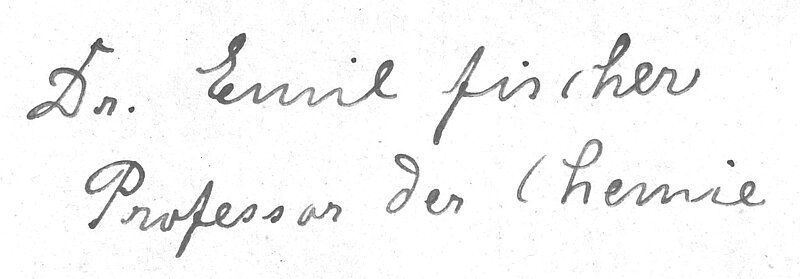 Dr. Emil Fischer
Professor der Chemie